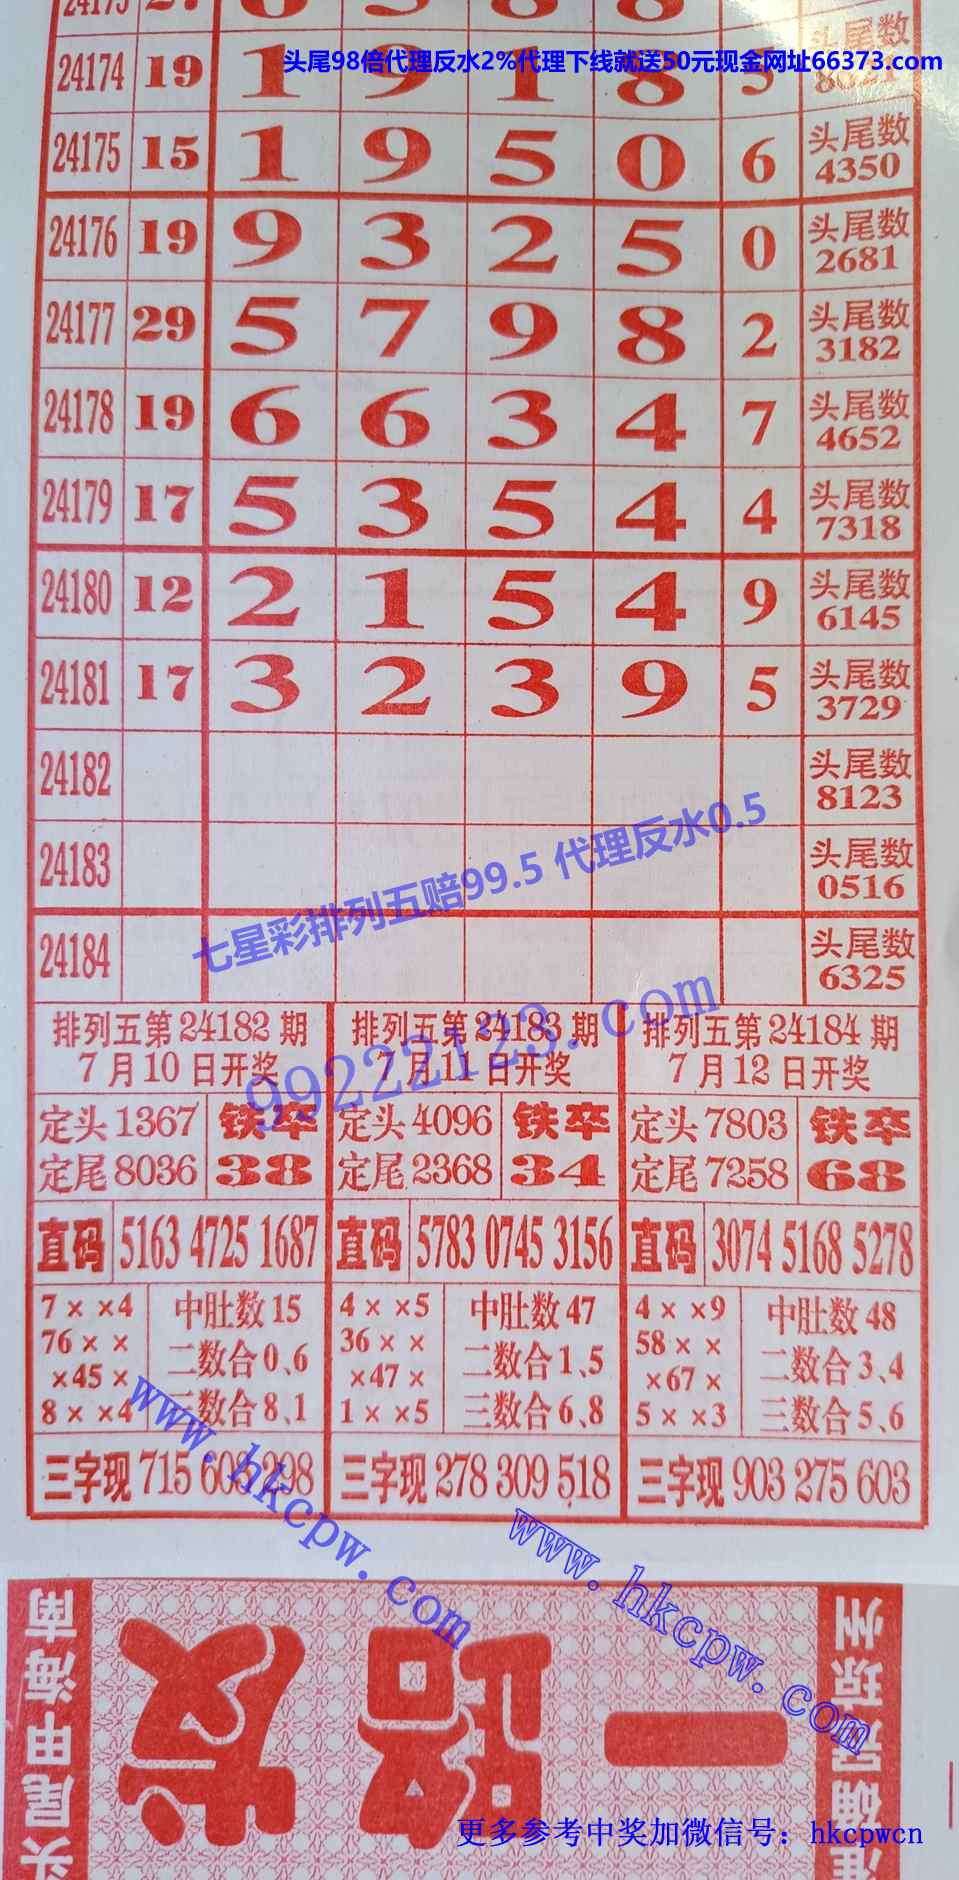 头尾98倍代理反水2%代理下线就送50元现金网址66373.com
24173 27 6 3 8 8
24174 19 1 9 1 8 5 头尾数
24175 15 1 9 5 0 6 头尾数 4350
24176 19 9 3 2 5 0 头尾数 2681
24177 29 5 7 9 8 2 头尾数 3182
24178 19 6 6 3 4 7 头尾数 4652
24179 17 5 3 5 4 4 头尾数 7318
24180 12 2 1 5 4 9 头尾数 6145
24181 17 3 2 3 9 5 头尾数 3729
24182 头尾数 8123
24183 头尾数 0516
24184 头尾数 6325
七星彩排列五赔99.5 代理反水0.5
99222123.com
排列五第24182期
7月10日开奖
定头1367 铁卒
定尾8036 38
直码 5163 4725 1687
7××4 中肚数15
76×× 二数合0、6
×45×
8××4 三数合8、1
三字现 715 603 298
排列五第24183期
7月11日开奖
定头4096 铁卒
定尾2368 34
直码 5783 0745 3156
4××5 中肚数47
36×× 二数合1、5
×47×
1××5 三数合6、8
三字现 278 309 518
排列五第24184期
7月12日开奖
定头7803 铁卒
定尾7258 68
直码 3074 5168 5278
4××9 中肚数48
58×× 二数合3、4
×67×
5××3 三数合5、6
三字现 903 275 603
www.hkcpw.com
www.hkcpw.com
头尾甲海南
一路发
准确
琼州
更多参考中奖加微信号：hkcpwcn